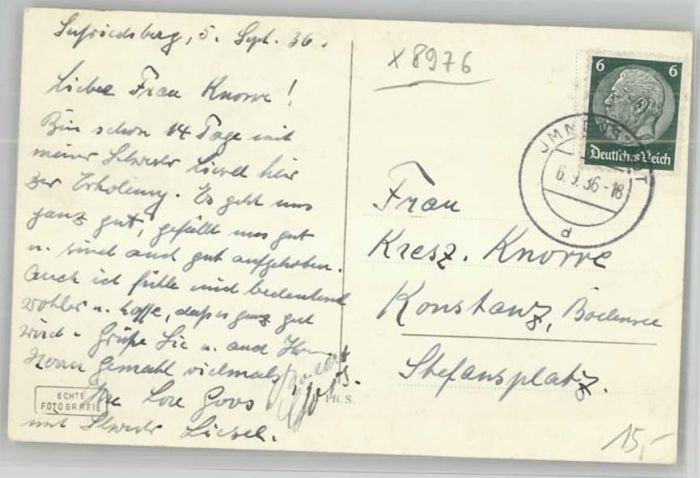 Seifriedsberg, 5. Sept. 36.
Liebe Frau Knorre!
Bin schon 14 Tage mit
meiner Schwester Liesel hier
zur Erholung. Es geht uns
ganz gut, gefällt uns gut
u. sind auch gut aufgehoben.
Auch ich fühle mich bedeutend
wohler u. hoffe, dass es ganz gut
wird. Grüße Sie u. auch Ihren
Herrn Gemahl vielmals
Ihre Lore Goos
mit Schwester Liesel.
ECHTE
FOTOGRAFIE
Ph.S.
X 8976
6 6
Deutsches Reich
IMMENSTADT
6.9.36-18
d
Frau
Kresz. Knorre
Konstanz, Bodensee
Stefansplatz.
15,-